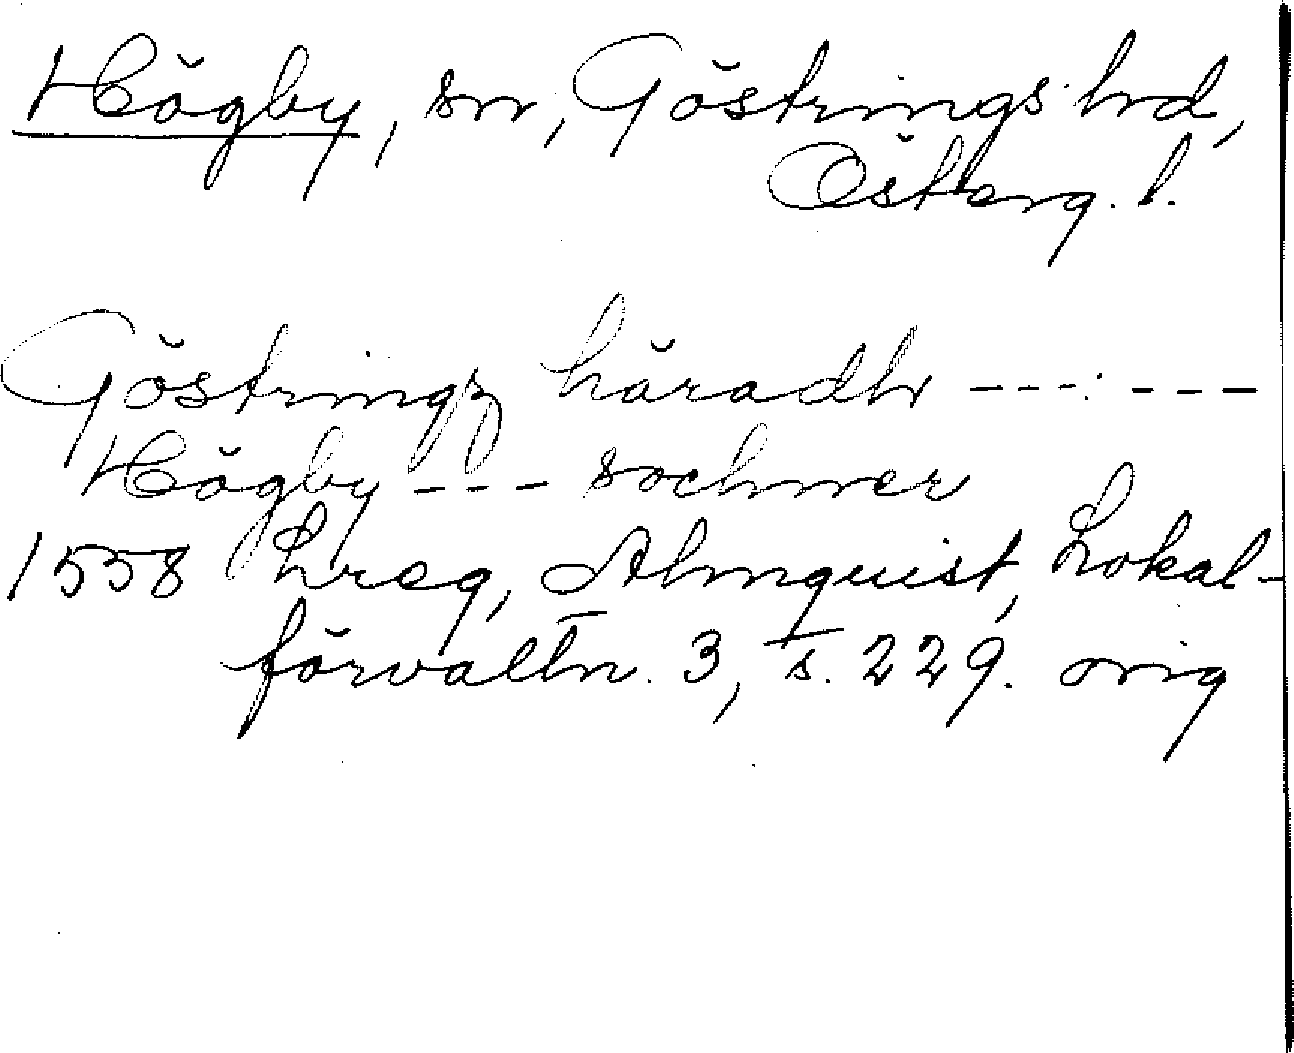 Högby, sn, Göstrings hrd,
Österg. l.
Göstringz häradh ------
Högby --- sochner
1558 Lreg, Almquist, Lokal-
förvaltn. 3, s. 229. orig